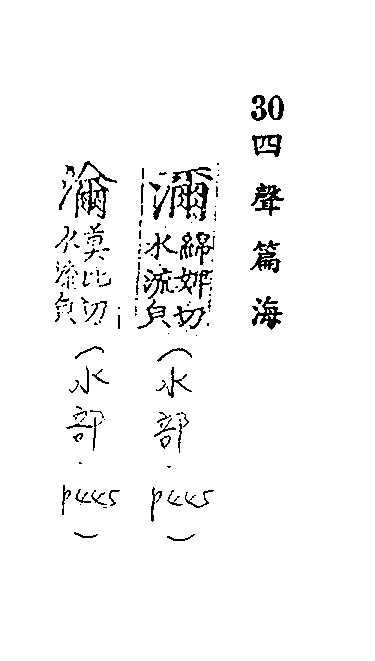 30四聲篇海
濔
綿婢切
水流皃
(水部.p445)
濔
莫比切
水流皃
(水部.p445)